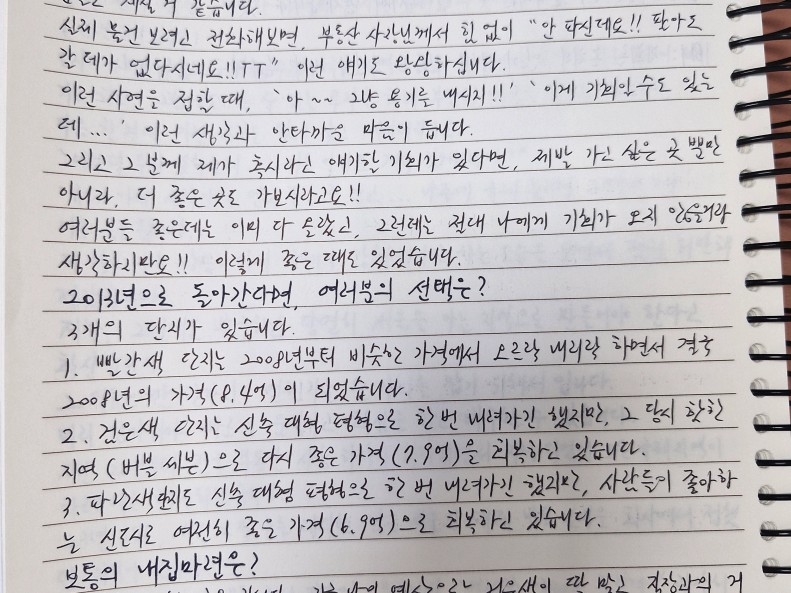 같습니다.
실제 물건 보려고 전화해보면, 부동산 사장님께서 힘 없이 "안 파신데요!! 팔아도
갈 데가 없다시네요!!TT" 이런 얘기도 왕왕하십니다.
이런 사연을 접할 때, '아~~ 그냥 용기를 내시지!!' '이게 기회일 수도 있는
데...' 이런 생각과 안타까운 마음이 듭니다.
그리고 그 분께 제가 혹시라도 얘기할 기회가 있다면, 제발 가고 싶은 곳 뿐만
아니라, 더 좋은 곳도 가보시라고요!!
여러분들 좋은데는 이미 다 올랐고, 그런데는 절대 나에게 기회가 오지 않을거라
생각하지만요!! 이렇게 좋은 때도 있었습니다.
2013년으로 돌아간다면, 여러분의 선택은?
3개의 단지가 있습니다.
1. 빨간색 단지는 2008년부터 비슷한 가격에서 오르락 내리락 하면서 결국
2008년의 가격(8.4억)이 되었습니다.
2. 검은색 단지는 신축 대형 평형으로 한 번 내려가긴 했지만, 그 당시 핫한
지역(버블세븐)으로 다시 좋은 가격(7.9억)을 회복하고 있습니다.
3. 파란색 단지도 신축 대형 평형으로 한 번 내려가긴 했지만, 사람들이 좋아하
는 신도시로 여전히 좋은 가격(6.9억)으로 회복하고 있습니다.
보통의 내집마련은?